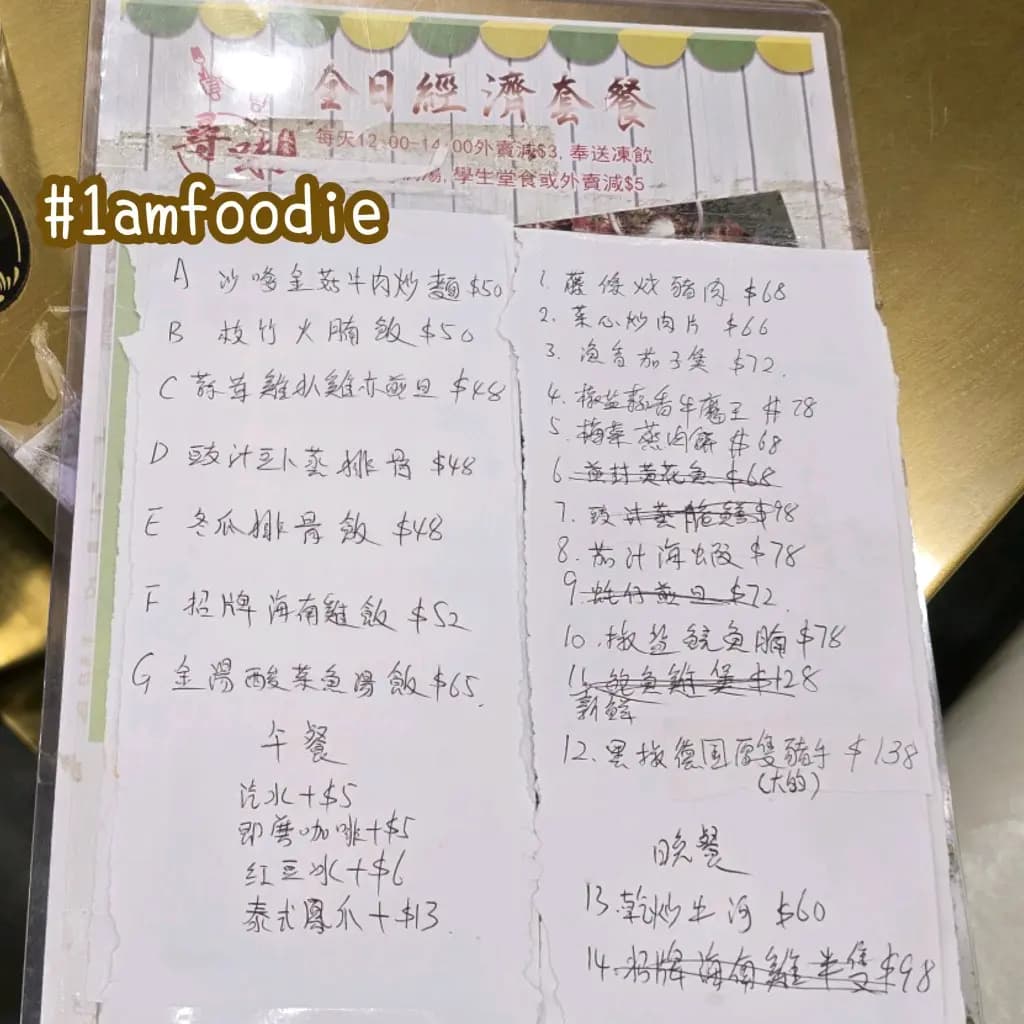 全日經濟套餐
尋味
每天12:00-14:00外賣減$3, 奉送凍飲
湯, 學生堂食或外賣減$5
#1amfoodie
A 沙嗲金菇牛肉炒麵 $50
B 枝竹火腩飯 $50
C 蒜茸雞扒雞亦煎旦 $48
D 豉汁豆卜蒸排骨 $48
E 冬瓜排骨飯 $48
F 招牌海南雞飯 $52
G 金湯酸菜魚湯飯 $65
午餐
汽水+$5
即磨咖啡+$5
红豆冰+$6
泰式鳳爪+$13
1. 蓮藕炆豬肉 $68
2. 菜心炒肉片 $66
3. 漁香茄子煲 $72
4. 椒盐蒜香牛魔王 $78
5. 梅菜蒸肉餅 $68
6. 煎封黄花魚 $68
7. 豉汁蒸脆鱔 $98
8. 茄汁海虾 $78
9. 蚝仔煎旦 $72
10. 椒盐鯇魚腩 $78
11. 鮑魚雞煲 $128
新鮮
12. 黑椒德国原隻豬手 $138
(大的)
晚餐
13. 乾炒牛河 $60
14. 招牌海南雞半隻 $98